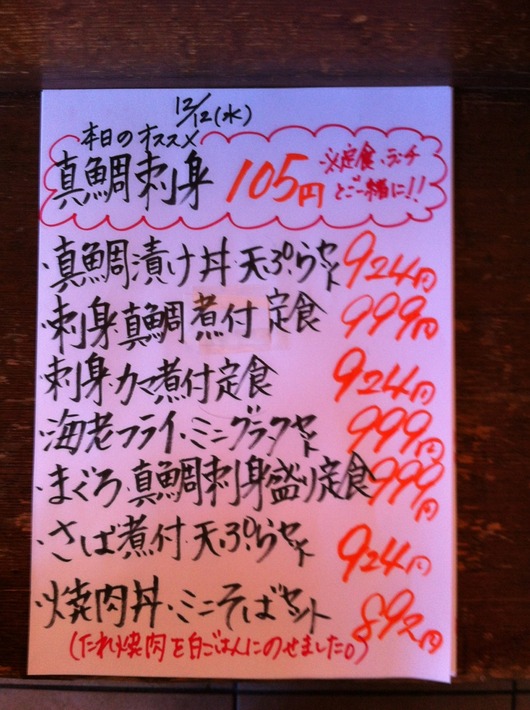 12/12(水)
本日のオススメ
真鯛刺身 105円 ※定食・ランチ
とご一緒に!!
・真鯛漬け丼・天ぷらセット 924円
・刺身・真鯛煮付定食 999円
・刺身・カマ煮付定食 924円
・海老フライ・ミニグラタンセット 999円
・まぐろ・真鯛刺身盛り定食 999円
・さば煮付・天ぷらセット 924円
・焼肉丼・ミニそばセット 892円
(たれ焼肉を白ごはんにのせました。)